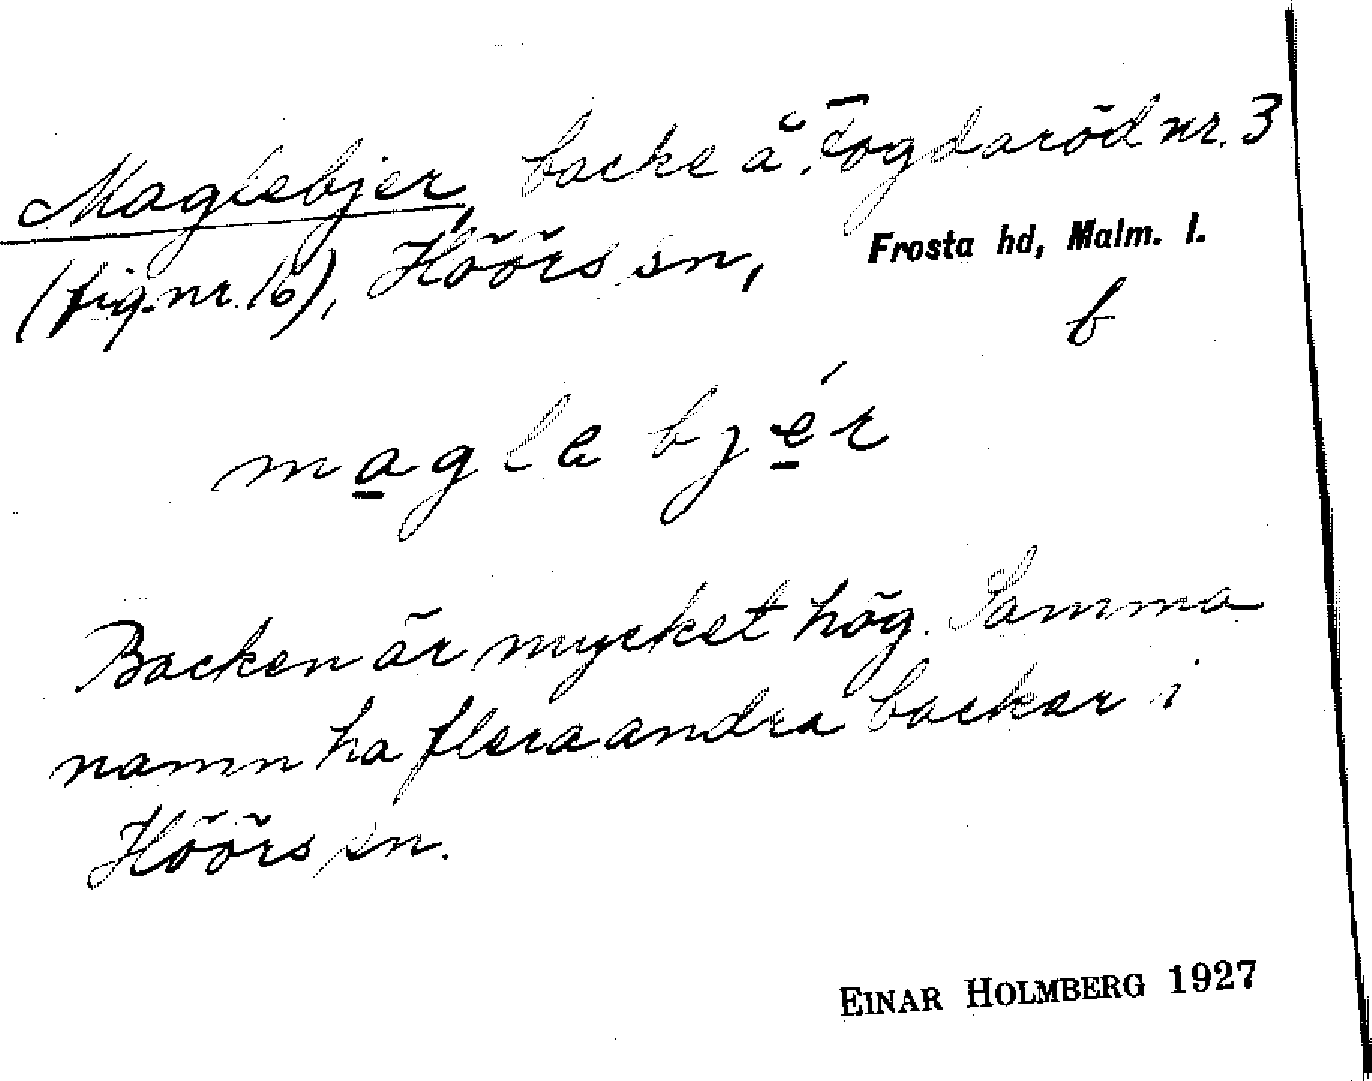 Maglebjer, backe å Fogdaröd nr. 3
(fig. nr. 16), Höörs sn, Frosta hd, Malm. l.
b
magle bjér
Backen är mycket hög. Samma
namn ha flera andra backar i
Höörs sn.
EINAR HOLMBERG 1927